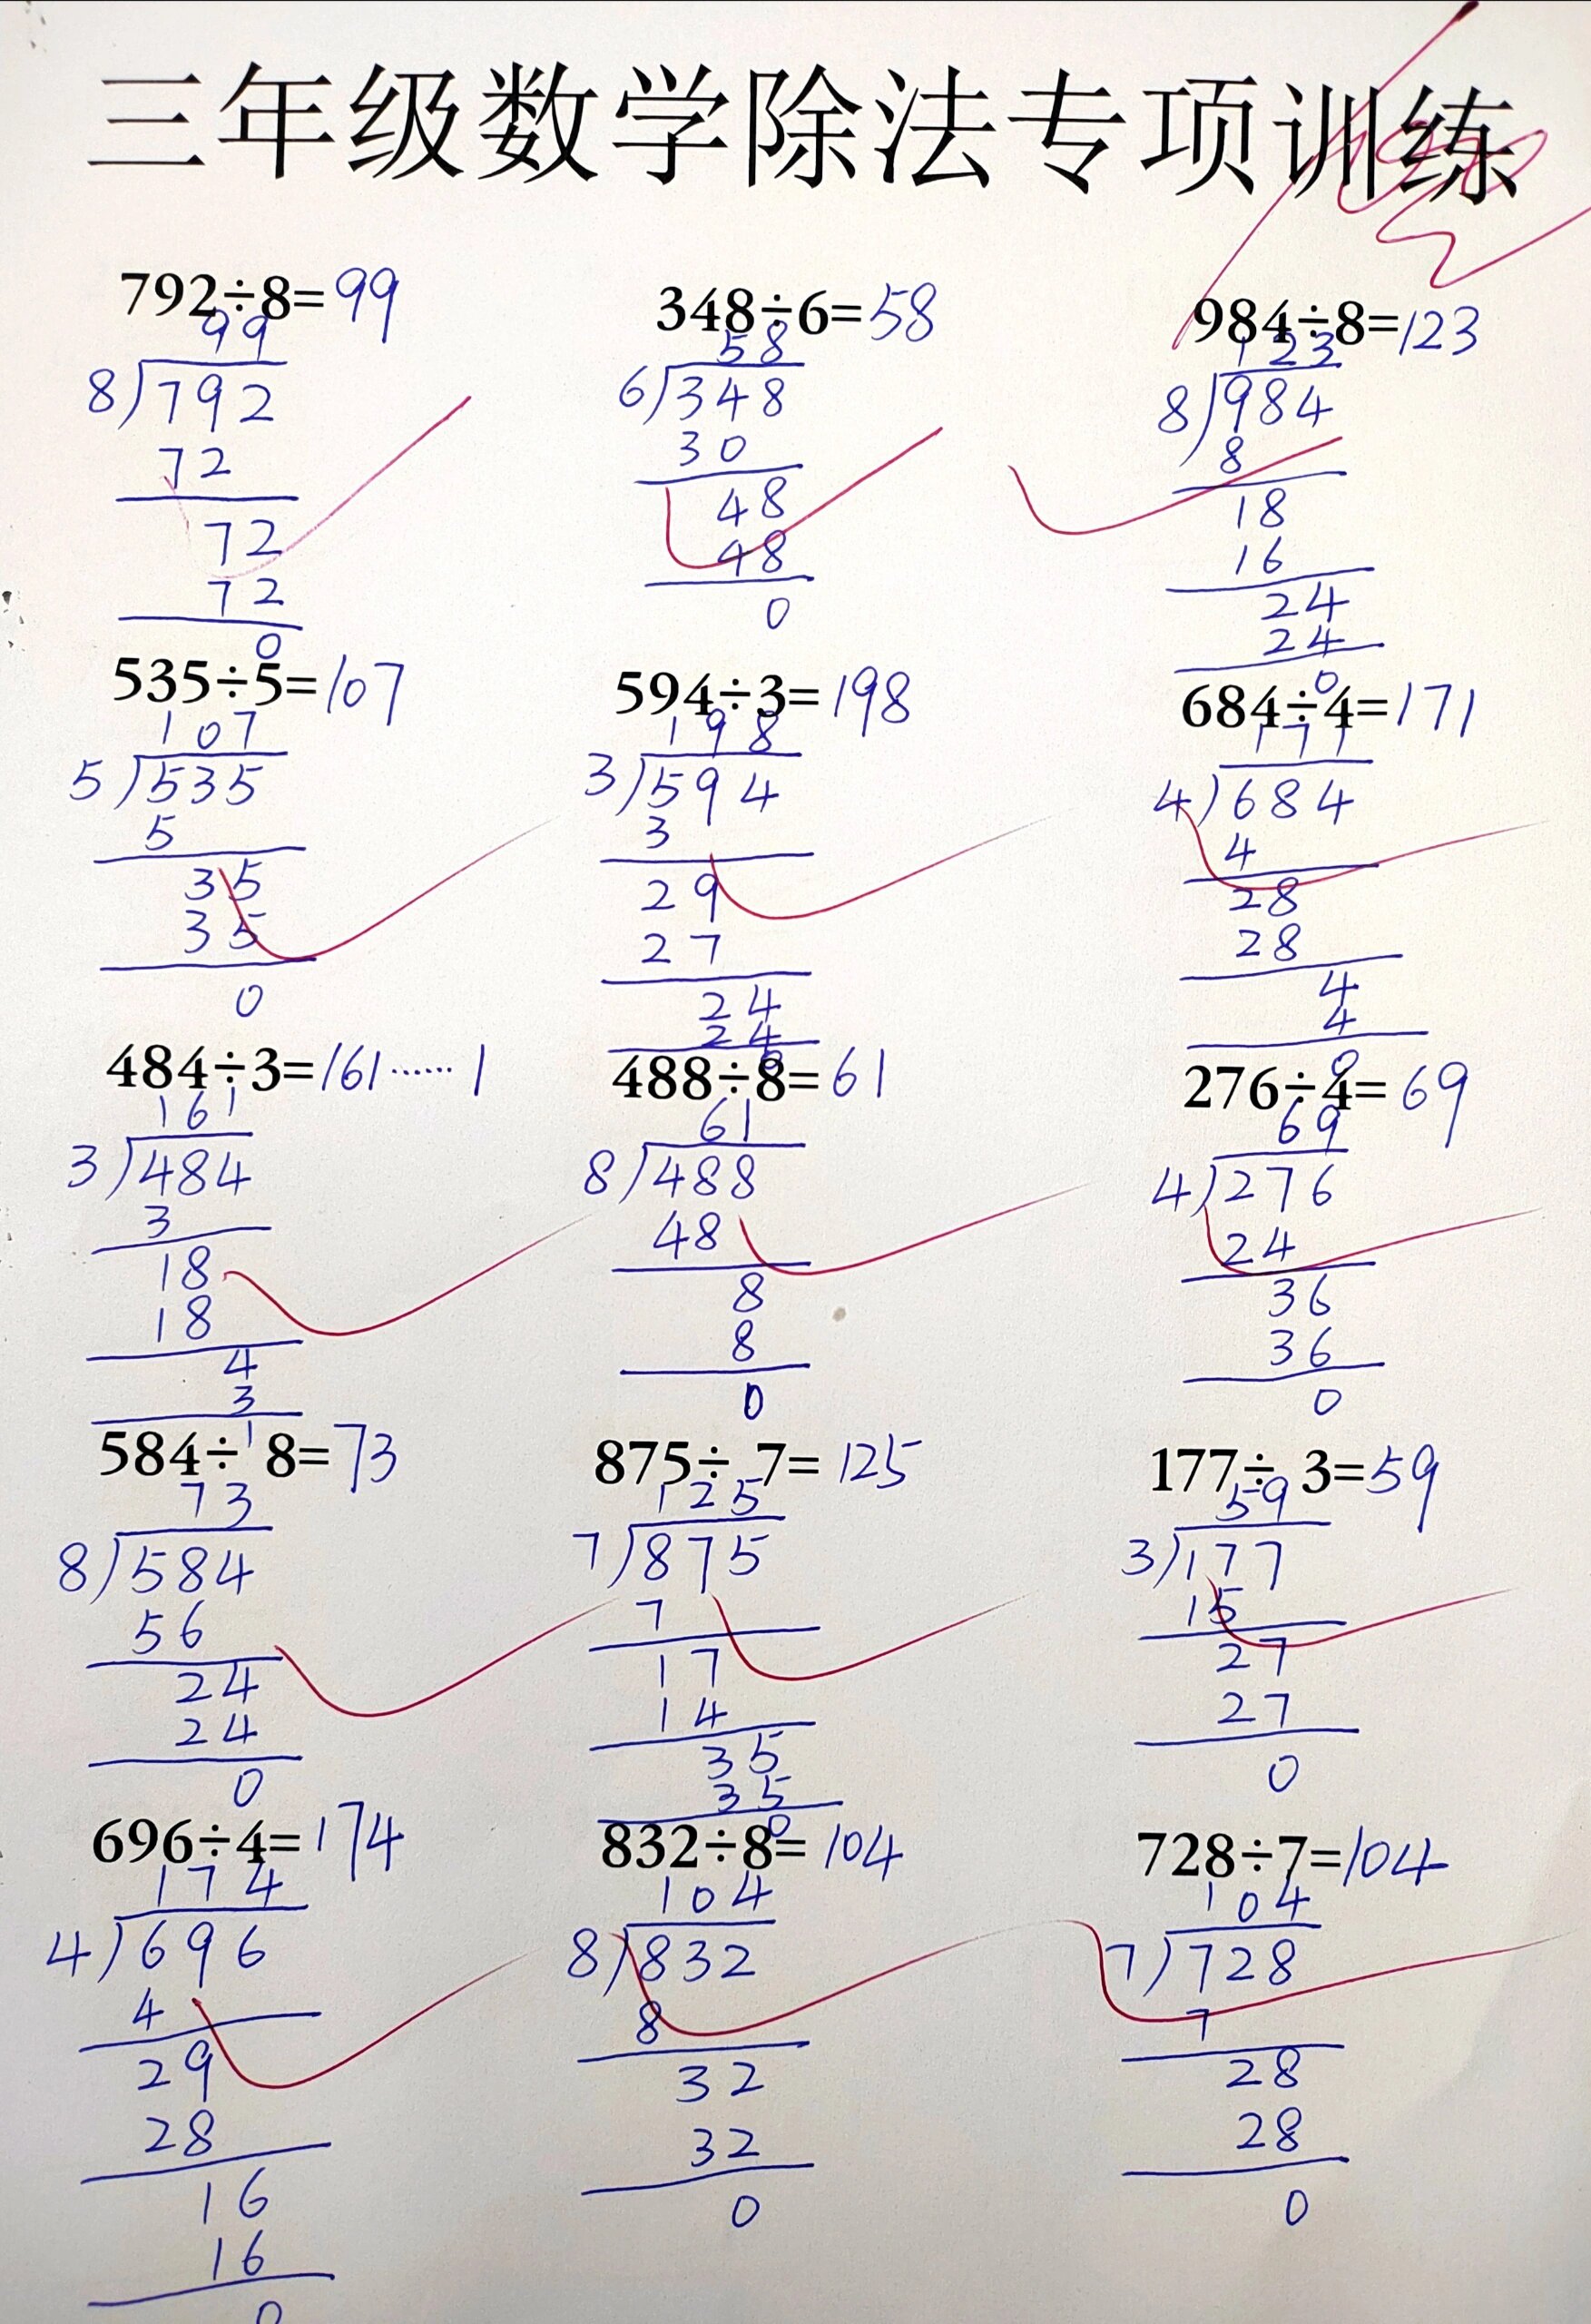 三年级数学除法专项训练
792÷8=99
99
8)792
72
72
72
0
348÷6=58
58
6)348
30
48
48
0
984÷8=123
123
8)984
8
18
16
24
24
0
535÷5=107
107
5)535
5
35
35
0
594÷3=198
198
3)594
3
29
27
24
24
0
684÷4=171
171
4)684
4
28
28
4
4
0
484÷3=161……1
161
3)484
3
18
18
4
3
1
488÷8=61
61
8)488
48
8
8
0
276÷4=69
69
4)276
24
36
36
0
584÷ 8=73
73
8)584
56
24
24
0
875÷ 7=125
125
7)875
7
17
14
35
35
0
177÷ 3=59
59
3)177
15
27
27
0
696÷4=174
174
4)696
4
29
28
16
16
0
832÷8=104
104
8)832
8
32
32
0
728÷7=104
104
7)728
7
28
28
0